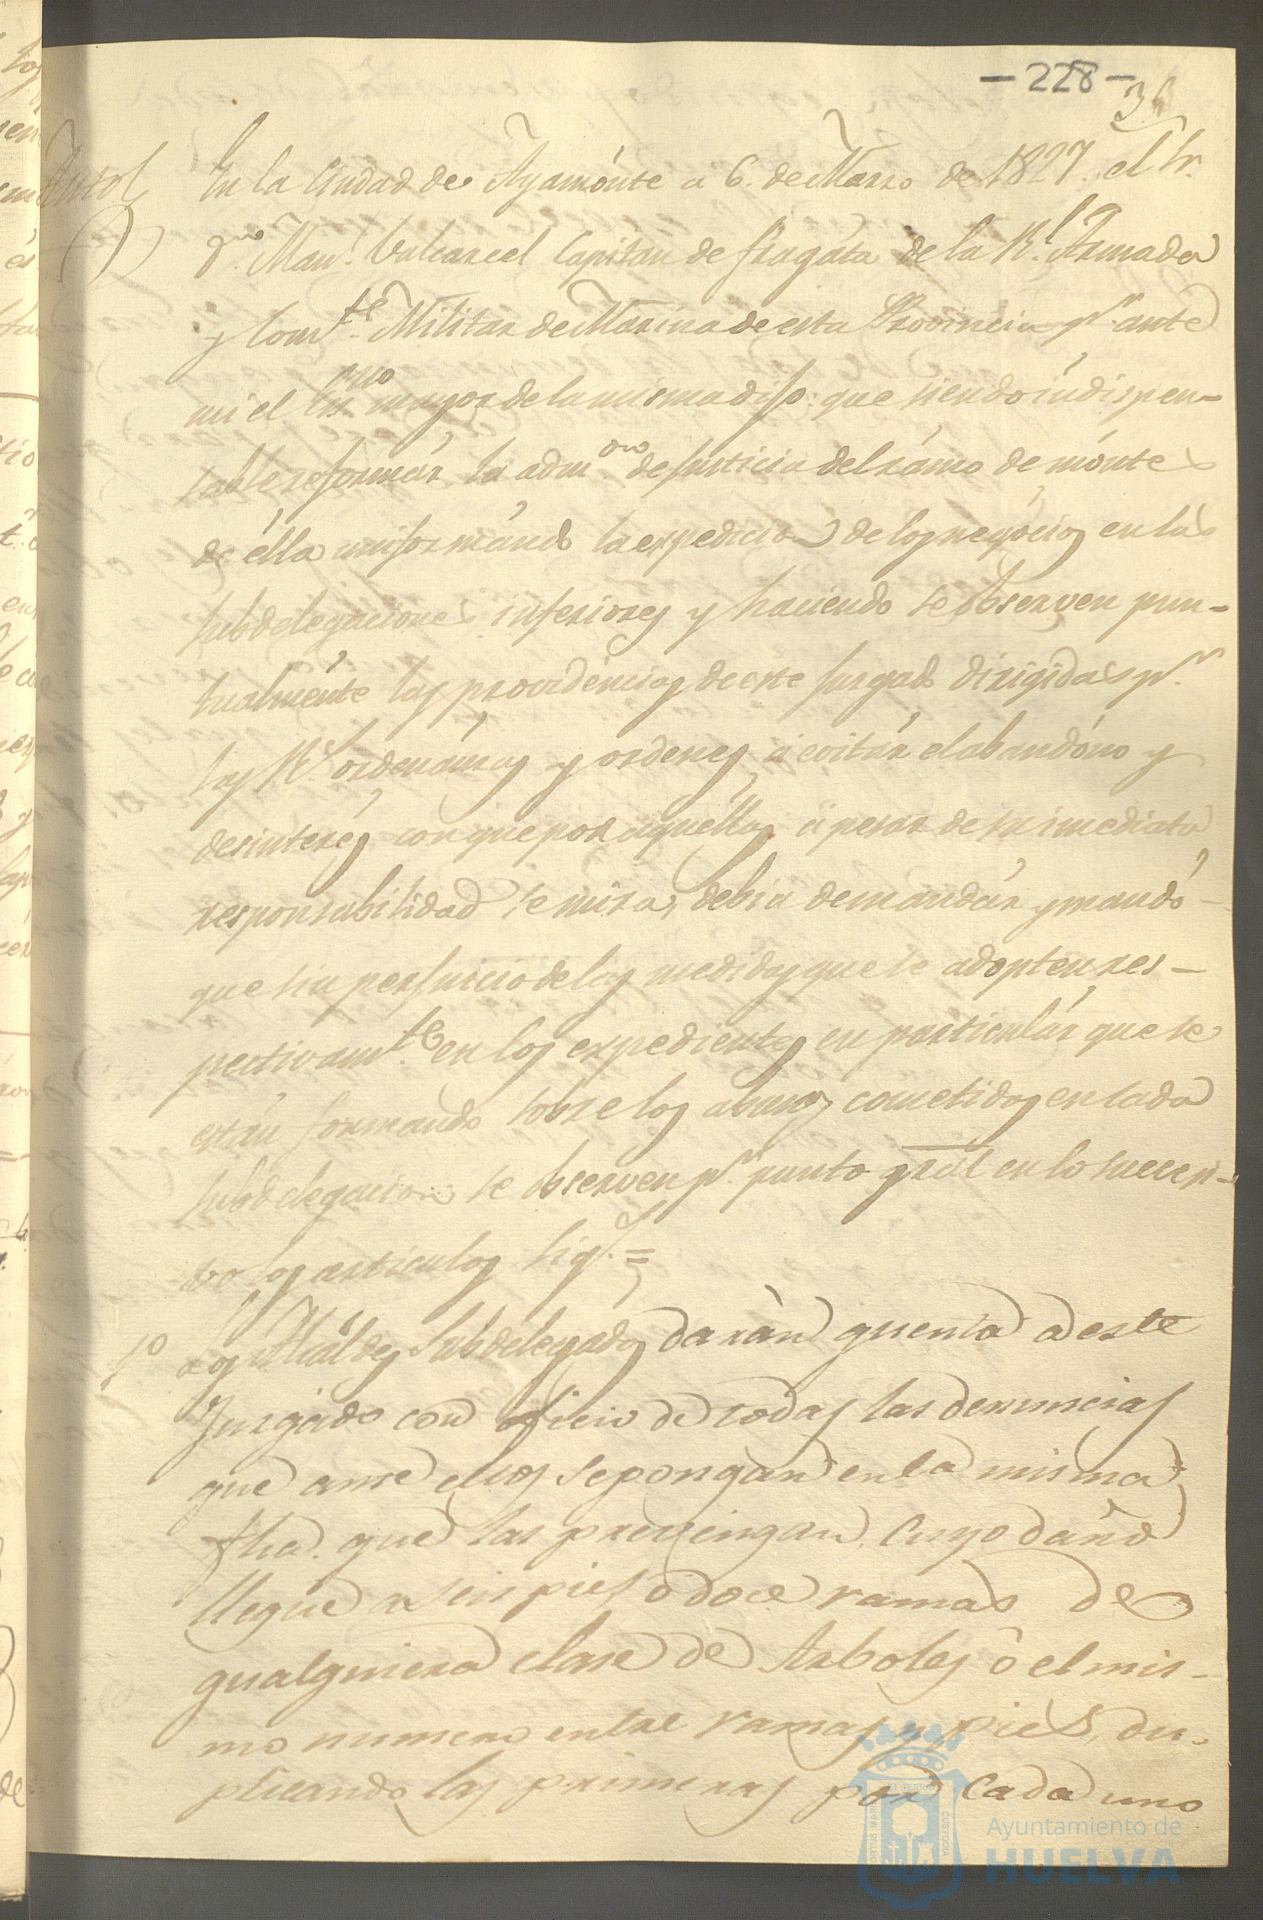 - 228 -
Autol
En la Ciudad de Ayamónte a 6. de Marzo de 1827. el Sr.
Dn. Man.l Valcarcel Capitan de fragáta de la Rl. Armada
y Com.te Militar de Marina de esta Provincia pr. ante
mi el Esno mayor de la misma dijo: que siendo indispen-
sable reformár la adm.on de justicia del rámo de móntes
de élla uniformándo la expedicion de los negócios en las
subdelegaciones inferiores y haciendo se observen pun-
tualménte las providéncias de este Juzgado dirigidas pr.
las Rs. ordenánzas y ordenes á evitár el abandóno y
desinterés con que por aquéllas á pesar de su imediata
responsabilidad se miran, debia de mandár y mandó
que sin perjuicio de las medidas que se adopten res-
pectivam.te en los expedientes en particulár que se
están formando sobre los abusos cometidos en cada
subdelegacion se observen pr. punto gral en lo succesi-
vo los articulos sigs. =
1o Los Alcaldes Subdelegados darán quenta a este
Juzgado con oficio de todas las denuncias
que ante ellos se pongan en la misma
fha. que las prevengan, cuyo daño
llegue a seis pies o doce ramas de
qualquiera clase de Arboles ó el mis-
mo numero entre ramas y pies, du-
plicando las primeras por cada uno
Ayuntamiento de
HUELVA